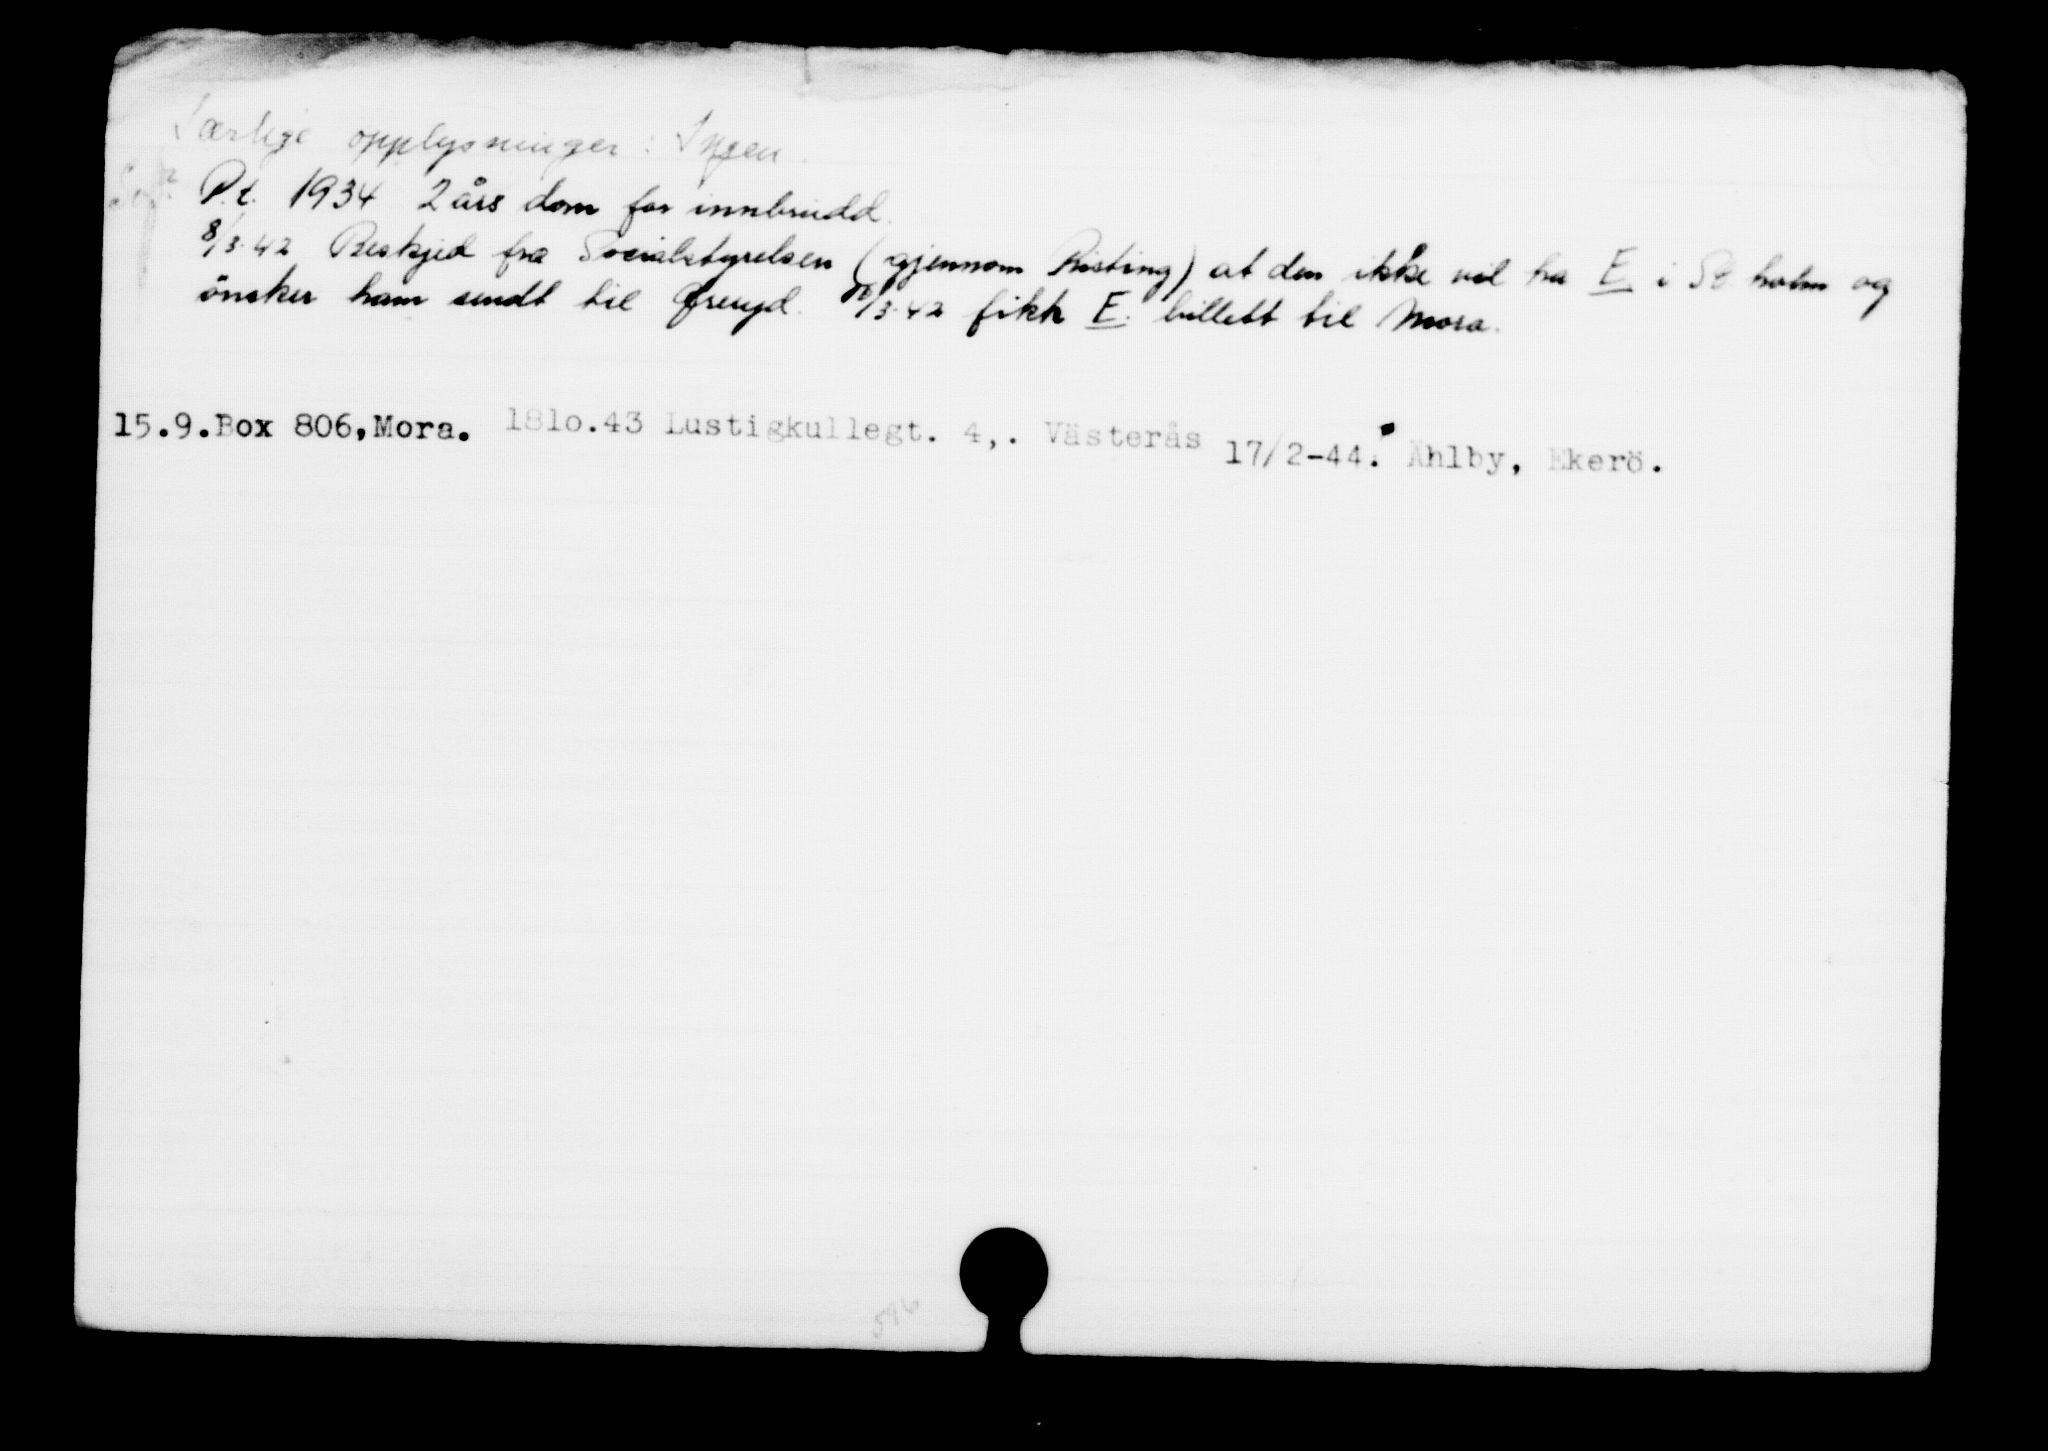 Særlige opplysninger: Ingen.
P.t. 1934 2 års dom for innbrudd.
8/3.42 Beskjed fra Socialstyrelsen (gjennom Risting) at den ikke vil ha E. i St.holm og
önsker ham sendt til Öreryd. /3.42 fikk E. billett til Mora.
15.9.Box 806,Mora. 181o.43 Lustigkullegt. 4,. Västerås 17/2-44. Ählby, Ekerö.
596